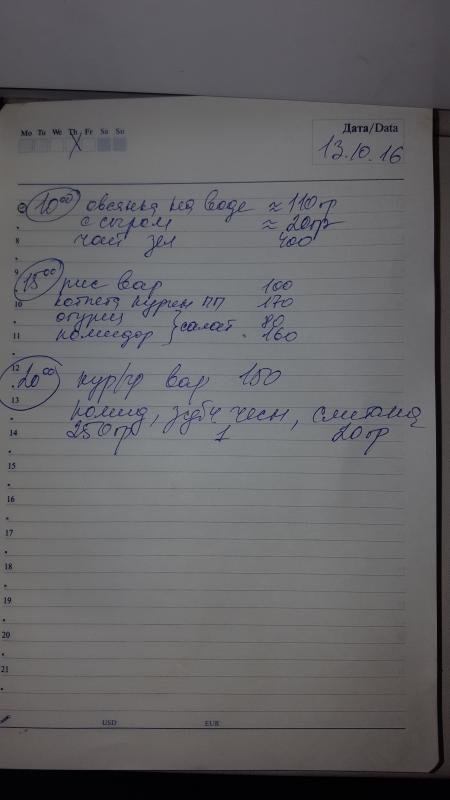 Mo Tu We Th Fr Sa Su
Дата/Data
13.10.16
10 00 овсянка на воде ≈ 110гр
с сыром ≈ 20гр
8 чай зел 400
9
15 00 рис вар 100
10 котлета курин ПП 170
огурец } салат 80
11 помидор 160
12
20 00 кур/гр вар 150
13
помид, зубч чесн, сметана
14 250гр 1 20гр
15
16
17
18
19
20
21
USD EUR